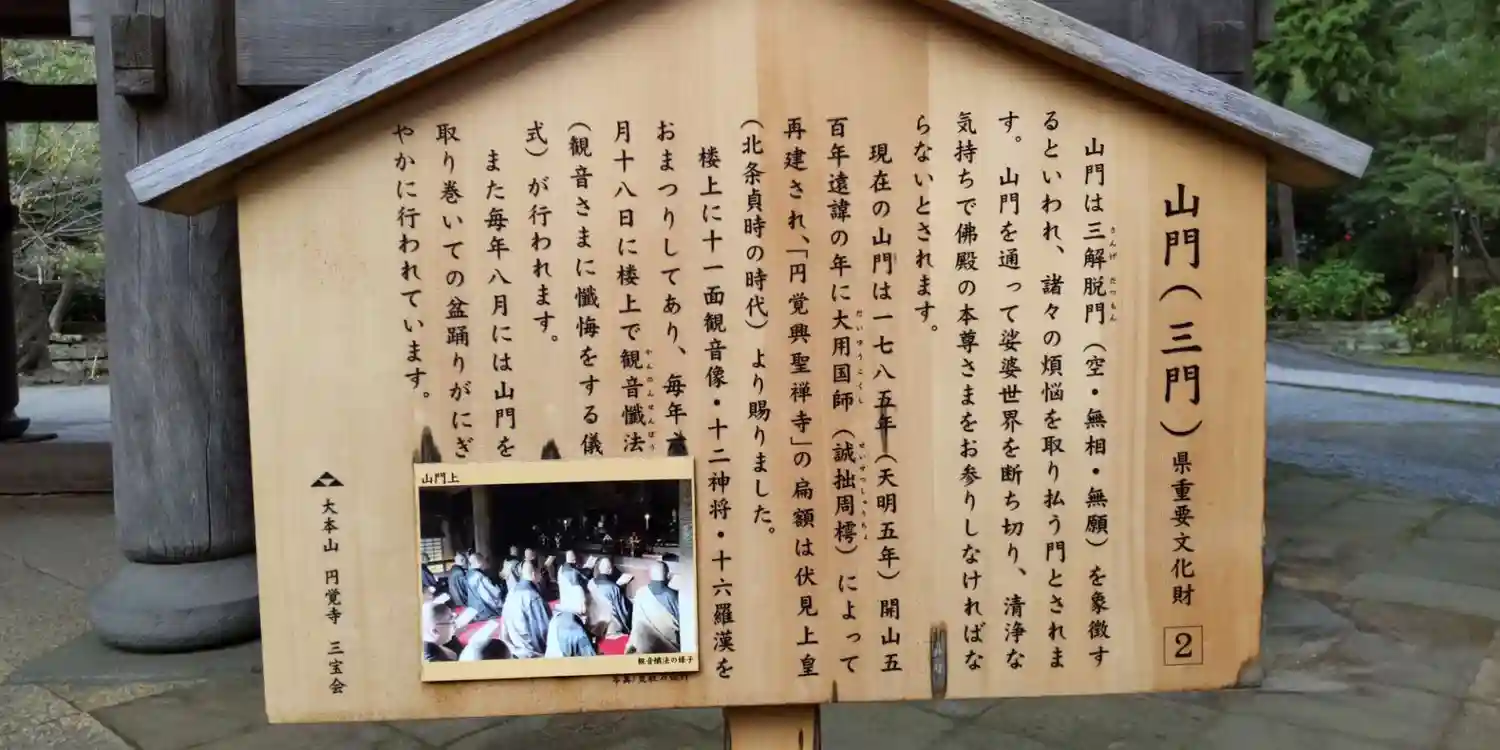 山門(三門)県重要文化財 2
山門は三解脱門(空・無相・無願)を象徴す
るといわれ、諸々の煩悩を取り払う門とされま
す。山門を通って娑婆世界を断ち切り、清浄な
気持ちで佛殿の本尊さまをお参りしなければな
らないとされます。
現在の山門は一七八五年(天明五年)開山五
百年遠諱の年に大用国師(誠拙周樗)によって
再建され、「円覚興聖禅寺」の扁額は伏見上皇
(北条貞時の時代)より賜りました。
楼上に十一面観音像・十二神将・十六羅漢を
おまつりしてあり、毎年六
月十八日に楼上で観音懺法
(観音さまに懺悔をする儀
式)が行われます。
また毎年八月には山門を
取り巻いての盆踊りがにぎ
やかに行われています。
山門上
観音懺法の様子
大本山 円覚寺 三宝会